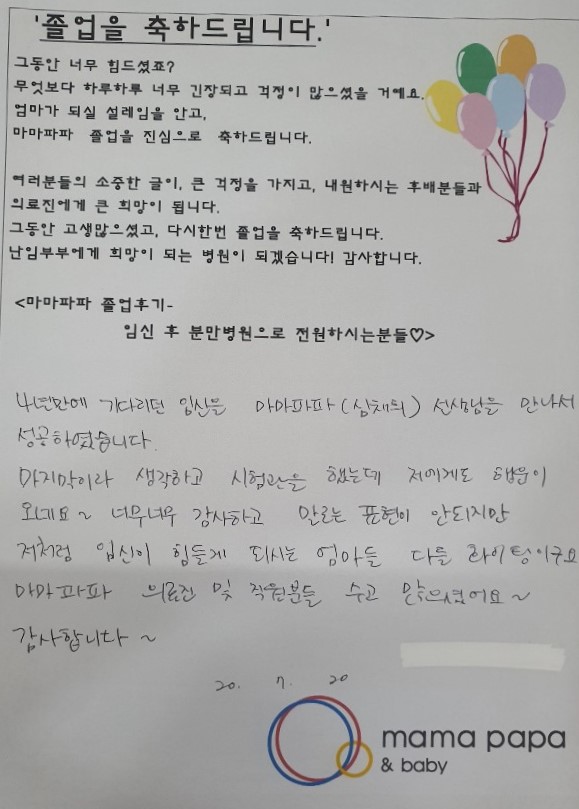 '졸업을 축하드립니다.'
그동안 너무 힘드셨죠?
무엇보다 하루하루 너무 긴장되고 걱정이 많으셨을 거예요.
엄마가 되실 설레임을 안고,
마마파파 졸업을 진심으로 축하드립니다.
여러분들의 소중한 글이, 큰 걱정을 가지고, 내원하시는 후배분들과
의료진에게 큰 희망이 됩니다.
그동안 고생많으셨고, 다시한번 졸업을 축하드립니다.
난임부부에게 희망이 되는 병원이 되겠습니다! 감사합니다.
<마마파파 졸업후기-
임신 후 분만병원으로 전원하시는분들♡>
4년만에 기다리던 임신을 마마파파(심채희) 선생님을 만나서
성공하였습니다.
마지막이라 생각하고 시험관을 했는데 저에게도 행운이
오네요~ 너무너무 감사하고 말로는 표현이 안되지만
저처럼 임신이 힘들게 되시는 엄마들 다들 화이팅이구요
마마파파 의료진 및 직원분들 수고 많으셨어요~
감사합니다~
20. 7. 20
mama papa
& baby